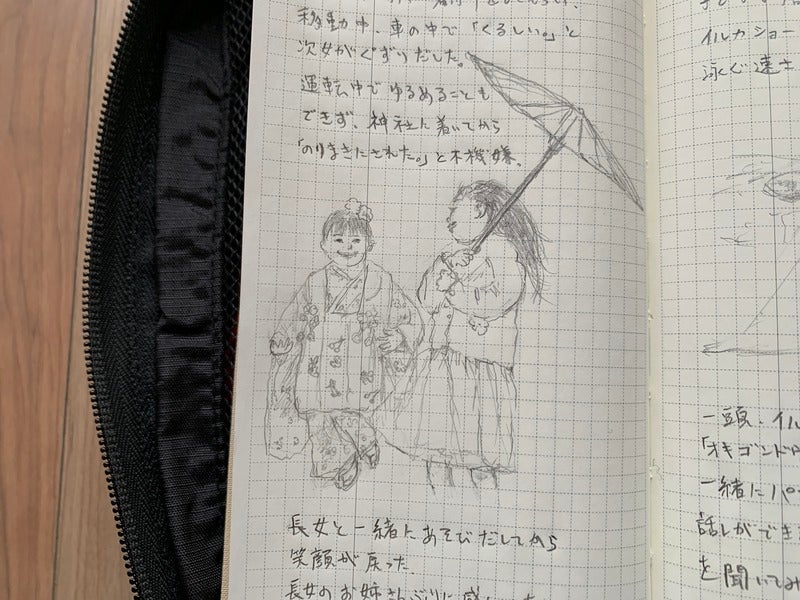 移動中、車の中で「くるしい。」と
次女がぐずりだした。
運転中でゆるめることも
できず、神社に着いてから
「のりまきにされた。」と不機嫌。
長女と一緒にあそびだしてから
笑顔が戻った
長女のお姉さんぶりに感
イルカショー
泳ぐ速さ
一頭、イル
「オキゴンドウ
一緒にパ
話しができ
を聞いてみ